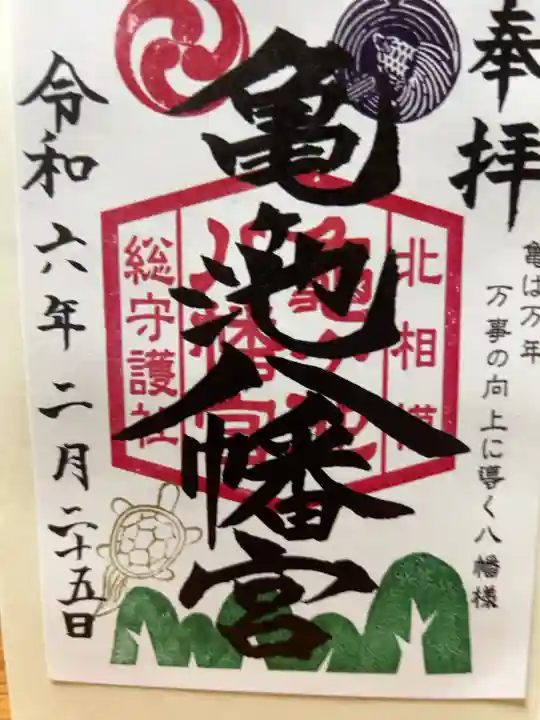 奉拝
亀は万年
万事の向上に導く八幡様
亀池八幡宮
北相模
亀ヶ池
八幡宮
総守護社
令和六年二月二十五日